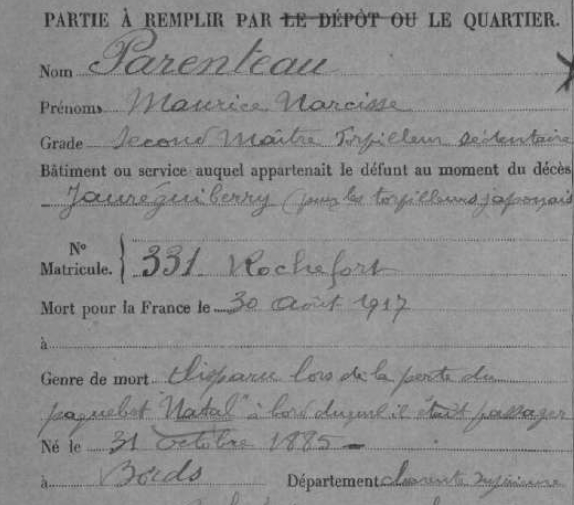 PARTIE À REMPLIR PAR LE DÉPÔT OU LE QUARTIER.
Nom Parenteau
Prénoms Maurice Narcisse
Grade Second Maître Torpilleur sédentaire
Bâtiment ou service auquel appartenait le défunt au moment du décès
Jauréguiberry (pour les torpilleurs japonais
N° Matricule. 331 Rochefort
Mort pour la France le 30 Août 1917
à
Genre de mort disparu lors de la perte du
paquebot "Natal" à bord duquel il était passager
Né le 31 Octobre 1885
à Bords Département Charente Inférieure